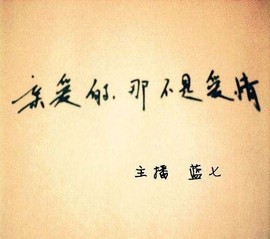 亲爱的,那不是爱情
主播 蓝七